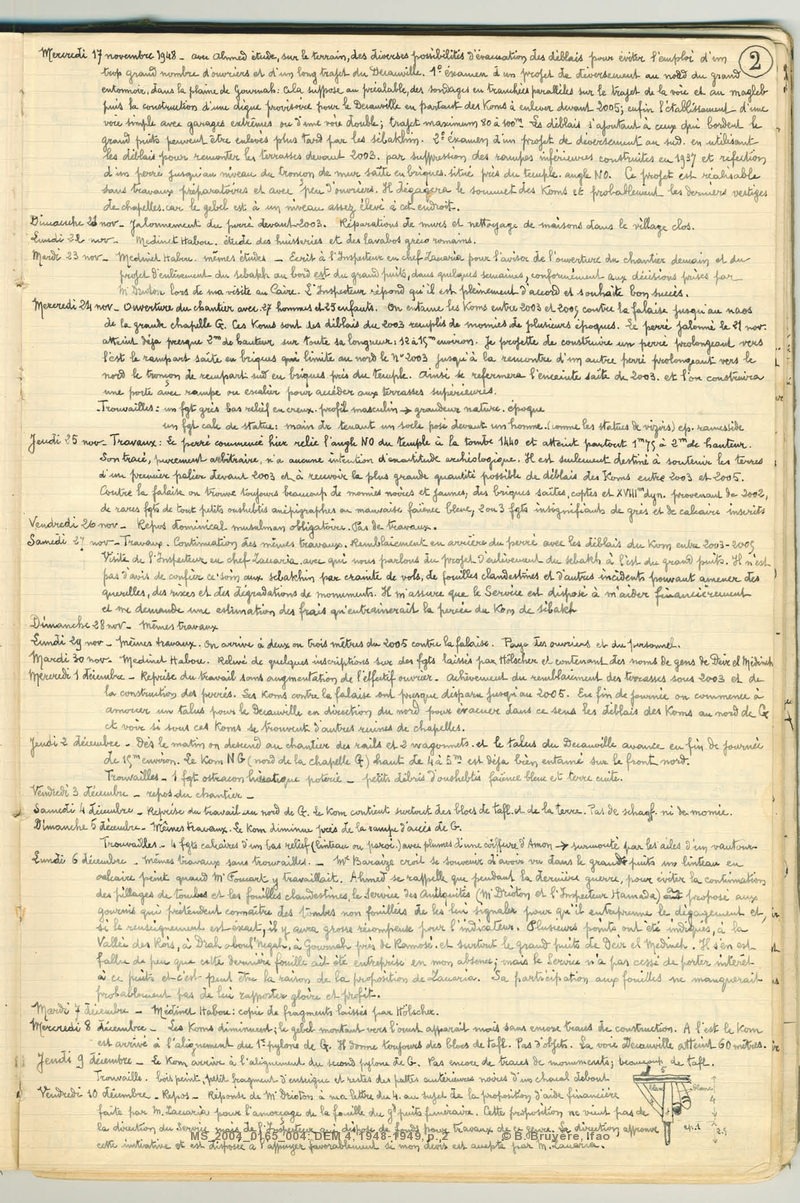 2
Mercredi 17 novembre 1948 - avec Ahmed étude, sur le terrain, des diverses possibilités d'évacuation des déblais pour éviter l'emploi d'un
trop grand nombre d'ouvriers et d'un long trajet du Decauville. 1° examen d'un projet de déversement au nord du grand
entonnoir, dans la plaine de Gournah: cela suppose au préalable, des sondages en tranchées parallèles sur le trajet de la voie et au
puis la construction d'une digue provisoire pour le Decauville en partant des Koms à enlever devant 2005; enfin l'établissement d'une
voie simple avec garages extrêmes ou d'une voie double; trajet maximum 80 à 100m. Les déblais s'ajoutant à ceux qui bordent le
grand puits peuvent être enlevés plus tard par les sébakhin. 2° examen d'un projet de déversement au sud en utilisant
les déblais pour remonter les terrasses devant 2003. par suppression des rampes inférieures construites en 1937 et réfection
d'un perré jusqu'au niveau du tronçon de mur saïte en briques situé près du temple. angle NO. Ce projet est réalisable
sans travaux préparatoires et avec peu d'ouvriers. Il dégagera le sommet des Koms et probablement les derniers vestiges
de chapelles car le gebel est à un niveau assez élevé à cet endroit.
Dimanche 21 nov - Jalonnement du perré devant 2003. Réparations de murs et nettoyage de maisons dans le village clos.
Lundi 22 nov - Medinet Habou. étude des huisseries et des lavabos gréco romains.
Mardi 23 nov - Medinet Habou. mêmes études - Ecrit à l'Inspecteur en chef Zacaria pour l'aviser de l'ouverture du chantier demain et du
projet d'enlèvement du sebakh au bord est du grand puits, dans quelques semaines, conformément aux décisions prises par
Mr Drioton lors de ma visite au Caire. L'Inspecteur répond qu'il est pleinement d'accord et souhaite bon succès.
Mercredi 24 nov - Ouverture du chantier avec 27 hommes et 25 enfants. On entame les Koms entre 2003 et 2005 contre la falaise jusqu'au naos
de la grande chapelle G. Ces Koms sont des déblais du 2003 remplis de momies de plusieurs époques. Le perré jalonné le 21 nov.
atteint déjà presque 2m de hauteur sur toute sa longueur: 12 à 15m environ. Je projette de construire un perré prolongeant vers
l'est le rempart saïte en briques qui limite au nord le n° 2003 jusqu'à la rencontre d'un autre perré prolongeant vers le
nord le tronçon de rempart sud en briques près du temple. Ainsi se refermera l'enceinte saïte du 2003. et l'on construira
une porte avec rampe ou escalier pour accéder aux terrasses supérieures.
Trouvailles: un fgt grès bas relief en creux. profil masculin → grandeur nature. époque
un fgt calc de statue: main dr tenant un socle posé devant un homme. (comme les statues de vizirs) ep. ramesside
Jeudi 25 nov - Travaux: Le perré commencé hier relie l'angle NO du temple à la tombe 1440 et atteint partout 1m75 à 2m de hauteur.
Son tracé, purement arbitraire, n'a aucune intention d'exactitude archéologique. Il est seulement destiné à soutenir les terres
d'un premier palier devant 2003 et à recevoir la plus grande quantité possible de déblais des Koms entre 2003 et 2005.
Contre la falaise on trouve toujours beaucoup de momies noires et jaunes, des briques saïtes, coptes et XVIIIme dyn. provenant du 2002,
de rares fgts de tout petits oushebtis anépigraphes en mauvaise faïence bleue, 2 ou 3 fgts insignifiants de grès et de calcaire inscrits
Vendredi 26 nov - Repos dominical musulman obligatoire. Pas de travaux.
Samedi 27 nov - Travaux. Continuation des mêmes travaux. Remblaiement en arrière du perré avec les déblais du Kom entre 2003-2005
Visite de l'Inspecteur en chef Zacaria avec qui nous parlons du projet d'enlèvement du sebakh à l'est du grand puits. Il n'est
pas d'avis de confier ce soin aux sebakhin par crainte de vols, de fouilles clandestines et d'autres incidents pouvant amener des
querelles, des rixes et des dégradations de monuments. Il m'assure que le Service est disposé à m'aider financièrement
et me demande une estimation des frais qu'entrainerait la percée du Kom de sebakh
Dimanche 28 nov - Mêmes travaux
Lundi 29 nov - Mêmes travaux. On arrive à deux ou trois mètres du 2005 contre la falaise. Paye des ouvriers et du personnel.
Mardi 30 nov - Medinet Habou. Relevé de quelques inscriptions sur des fgts laissés par Hölscher et contenant des noms de gens de Deir el Médineh
Mercredi 1 décembre - Reprise du travail sans augmentation de l'effectif ouvrier. Achèvement du remblaiement des terrasses sous 2003 et de
la construction des perrés. Les Koms contre la falaise ont presque disparu jusqu'au 2005. En fin de journée on commence à
amorcer un talus pour le Decauville en direction du nord pour évacuer dans ce sens les déblais des Koms au nord de G
et voir si sous ces Koms se trouvent d'autres ruines de chapelles.
Jeudi 2 décembre - Dès le matin on descend au chantier des rails et 2 wagonnets. et le talus du Decauville avance en fin de journée
de 15m environ. Le Kom NG (nord de la chapelle G) haut de 4 à 5m est déjà bien entamé sur le front nord.
Trouvailles - 1 fgt ostracon hiératique poterie - petits débris d'oushebtis faïence bleue et terre cuite.
Vendredi 3 décembre - repos du chantier -
Samedi 4 décembre - Reprise du travail au nord de G. Le Kom contient surtout des blocs de tafl. d. de la terre. Pas de schaqf. ni de momie.
Dimanche 5 décembre - Mêmes travaux. Le Kom diminue près de la rampe d'accès de G.
Trouvailles - 4 fgts calcaires d'un bas relief (linteau ou paroi) avec plumes d'une coiffure d'Amon → surmonté par les ailes d'un vautour.
Lundi 6 décembre - Mêmes travaux sans trouvailles. - Mr Baraize croit se souvenir d'avoir vu dans le grand puits un linteau en
calcaire peint quand Mr Foucart y travaillait. Ahmed se rappelle que pendant la dernière guerre, pour éviter la continuation
des pillages de tombes et les fouilles clandestines, le Service des Antiquités (Mr Drioton et l'Inspecteur Hamada) ont proposé aux
gournis qui prétendent connaître des tombes non fouillées de les leur signaler pour qu'il entreprenne le dégagement et,
si le renseignement est exact, il y aura grosse récompense pour l'indicateur. Plusieurs points ont été indiqués, à la
Vallée des Rois, à Drah aboul'Negah, à Gournah près de Ramosé. et surtout le grand puits de Deir el Médineh. Il s'en est
fallu de peu que cette dernière fouille ait été entreprise en mon absence; mais le Service n'a pas cessé de porter intérêt
à ce puits et c'est peut être la raison de la proposition de Zacaria. Sa participation aux fouilles ne manquerait
probablement pas de lui rapporter gloire et profit.
Mardi 7 décembre - Médinet Habou: copie de fragments laissés par Hölscher.
Mercredi 8 décembre - Les Koms diminuent; le gebel montant vers l'ouest apparait mais sans encore traces de construction. A l'est le Kom
est arrivé à l'alignement du 1er pylone de G. Il donne toujours des blocs de tafl. Pas d'objets. La voie Decauville atteint 60 mètres.
Jeudi 9 décembre - Le Kom arrive à l'alignement du second pylone de G. Pas encore de traces de monuments; beaucoup de tafl.
Trouvaille. bois peint, petit fragment d'enseigne et restes des pattes antérieures noires d'un chacal debout.
Vendredi 10 décembre - Repos - Réponse de Mr Drioton à ma lettre du 4. au sujet de la proposition d'aide financière
faite par M. Zacaria pour l'amorçage de la fouille du gd puits funéraire. Cette proposition ne vient pas de
la direction du Service mais de l'Inspecteur qui dispose de fonds pour travaux de ce genre. La direction approuve
cette initiative et est disposée à l'appuyer favorablement si mon devis est accepté par M. Zacaria.
5
blanc
ep. 1
MS_2004_0165_004. DEM 4, 1948-1949, p. 2
© B. Bruyère, Ifao